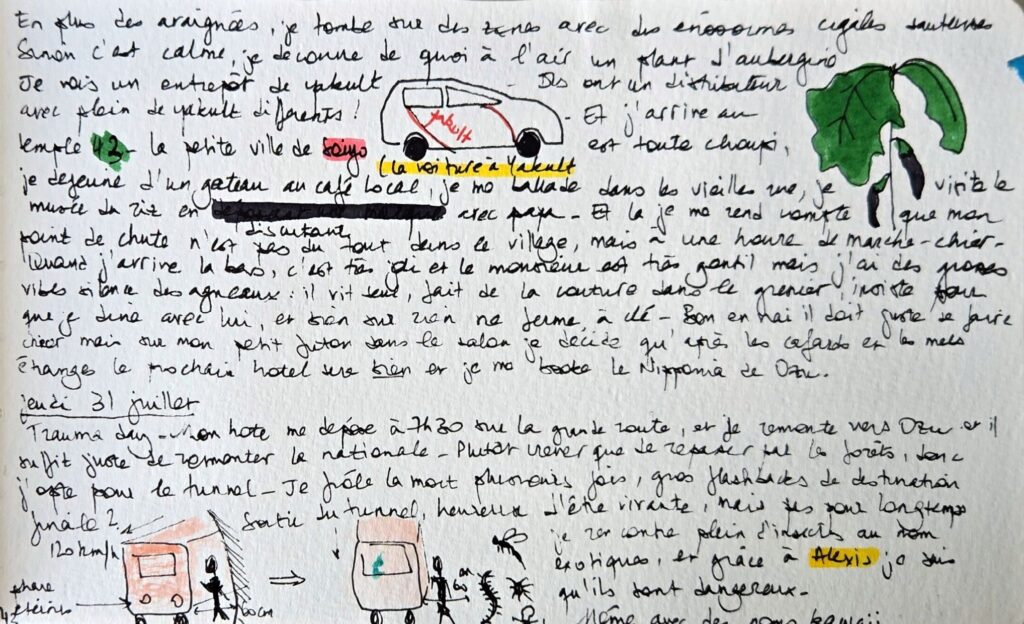 En plus des araignées, je tombe sur des zones avec des énooormes cigales sauteuses
Sinon c'est calme, je déconne de quoi à l'air un plant d'aubergine
Je vois un entrepôt de yakult - Ils ont un distributeur
avec plein de yakult différents ! - Et j'arrive au
yakult
temple 43 - la petite ville de est toute choupi,
(la voiture à Yakult
je déjeune d'un gateau au café local, je me ballade dans les vieilles rue, je visite le
musée du riz en discutant avec papa - Et la je me rend compte que mon
point de chute n'est pas du tout dans le village, mais à une heure de marche - chier -
Quand j'arrive la bas, c'est très joli et le monsieur est très gentil mais j'ai des grosses
vibes silence des agneaux : il vit seul, fait de la couture dans le grenier, insiste pour
que je dine avec lui, et bien sur rien ne ferme à clé - Bon en vrai il doit juste se faire
chier mais sur mon petit futon dans le salon je décide qu'après les cafards et les mecs
étranges le prochain hotel sera bien et je me booke le Nipponia de Ozu.
jeudi 31 juillet
Trauma day - Mon hote me dépose à 7h30 sur la grande route, et je remonte vers Ozu et il
suffit juste de remonter la nationale - Plutôt crever que de repasser par les forêts, donc
j'opte pour le tunnel - Je frôle la mort plusieurs fois, gros flashbacks de destination
finale 2 Sortie du tunnel, heureuse d'être vivante, mais pas pour longtemps
120 km/h je rencontre plein d'insectes au nom
exotiques, et grâce à Alexis je sais
phare
60 cm
qu'ils sont dangereux -
Même avec des noms kawaii